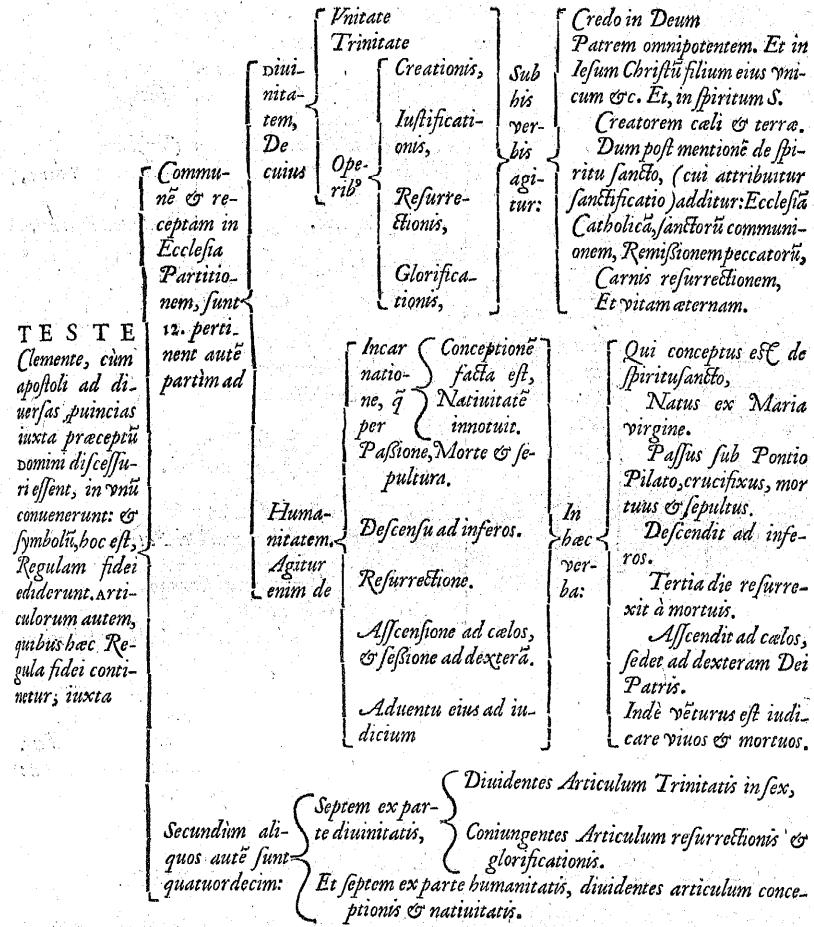 TESTE
Clemente, cùm
apostoli ad di-
uersas ꝓuincias
iuxta præceptũ
Domini discessu-
ri essent, in vnũ
conuenerunt: &
symbolũ, hoc est,
Regulam fidei
ediderunt. Arti-
culorum autem,
quibus hæc Re-
gula fidei conti-
netur; iuxta
Commu-
nẽ & re-
ceptam in
Ecclesia
Partitio-
nem, sunt
12. perti-
nent autẽ
partìm ad
Diui-
nita-
tem,
De
cuius
Vnitate
Trinitate
Ope-
ribꝰ
Creationis,
Iustificati-
onis,
Resurre-
ctionis,
Glorifica-
tionis,
Sub
his
ver-
bis
agi-
tur:
Credo in Deum
Patrem omnipotentem. Et in
Iesum Christũ filium eius vni-
cum &c. Et, in spiritum S.
Creatorem cæli & terræ.
Dum post mentionẽ de spi-
ritu sancto, (cui attribuitur
sanctificatio) additur: Ecclesiã
Catholicã, sanctorũ communi-
onem, Remissionem peccatorũ,
Carnis resurrectionem,
Et vitam æternam.
Huma-
nitatem.
Agitur
enim de
Incar
natio-
ne, q̃
per
Conceptionẽ
facta est,
Natiuitatẽ
innotuit.
Passione, Morte & se-
pultura.
Descensu ad inferos.
Resurrectione.
Asscensione ad cælos,
& sessione ad dexterã.
Aduentu eius ad iu-
dicium
In
hæc
ver-
ba:
Qui conceptus est de
spiritusancto,
Natus ex Maria
virgine.
Passus sub Pontio
Pilato, crucifixus, mor
tuus & sepultus.
Descendit ad infe-
ros.
Tertia die resurre-
xit à mortuis.
Asscendit ad cælos,
sedet ad dexteram Dei
Patris.
Indè vẽturus est iudi-
care viuos & mortuos.
Secundùm ali-
quos autẽ sunt
quatuordecim:
Septem ex par-
te diuinitatis,
Diuidentes Articulum Trinitatis in sex,
Coniungentes Articulum resurrectionis &
glorificationis.
Et septem ex parte humanitatis, diuidentes articulum conce-
ptionis & natiuitatis.